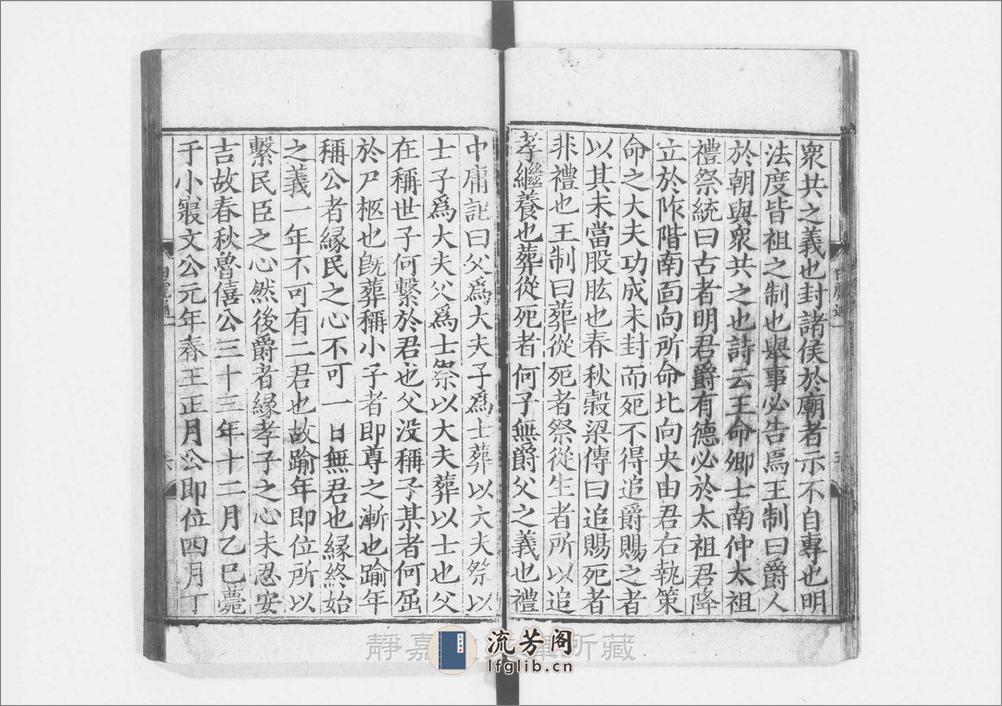 衆共之義也封諸侯於廟者示不自專也明
法度皆祖之制也舉事必告焉王制曰爵人
於朝與衆共之也詩云王命卿士南仲太祖
禮祭統曰古者明君爵有德必於太祖君降
立於阼階南面向所命北向央由君右執策
命之大夫功成未封而死不得追爵賜之者
以其未當股肱也春秋榖梁傳曰追賜死者
非禮也王制曰葬從死者祭從生者所以追
孝繼養也葬從死者何子無爵父之義也禮
中庸記曰父爲大夫子爲士葬以大夫祭以
士子爲大夫父爲士祭以大夫葬以士也父
在稱世子何繫於君也父没稱子某者何屈
於尸柩也旣葬稱小子者即尊之漸也踰年
稱公者緣民之心不可一日無君也緣終始
之義一年不可有二君也故踰年即位所以
繫民臣之心然後爵者緣孝子之心未忍安
吉故春秋魯僖公三十三年十二月乙巳薨
于小寢文公元年春王正月公即位四月丁
六
流芳阁
lfglib.cn
靜嘉 所藏